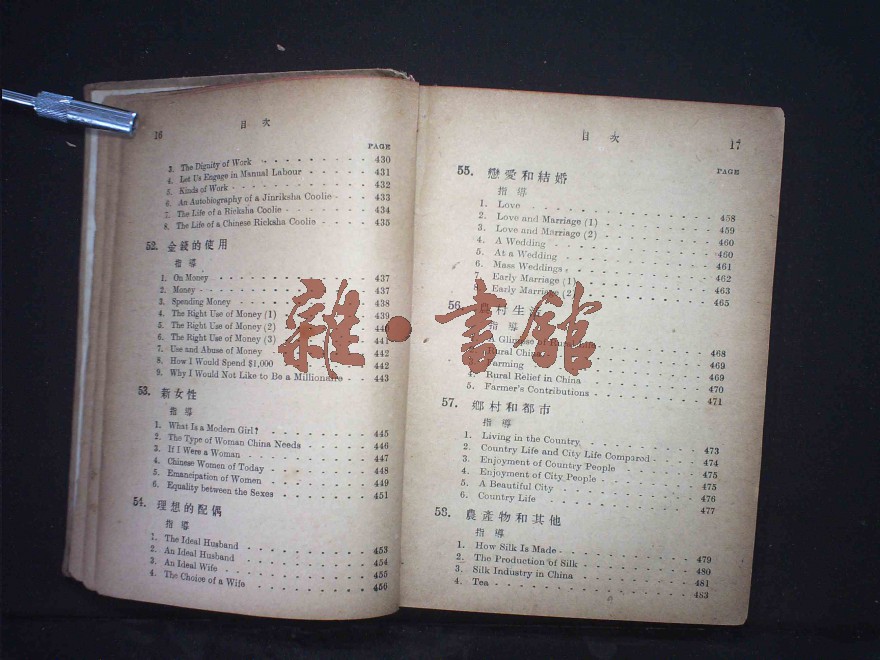 16
目 次
PAGE
3. The Dignity of Work 430
4. Let Us Engage in Manual Labour 431
5. Kinds of Work 432
6. An Autobiography of a Jinriksha Coolie 433
7. The Life of a Ricksha Coolie 434
8. The Life of a Chinese Ricksha Coolie 435
52. 金錢的使用
指 導
1. On Money 437
2. Money 437
3. Spending Money 438
4. The Right Use of Money (1) 439
5. The Right Use of Money (2) 440
6. The Right Use of Money (3) 441
7. Use and Abuse of Money 442
8. How I Would Spend $1,000 442
9. Why I Would Not Like to Be a Millionaire 443
53. 新女性
指 導
1. What Is a Modern Girl? 445
2. The Type of Woman China Needs 446
3. If I Were a Woman 447
4. Chinese Women of Today 448
5. Emancipation of Women 449
6. Equality between the Sexes 451
54. 理想的配偶
指 導
1. The Ideal Husband 453
2. An Ideal Husband 454
3. An Ideal Wife 455
4. The Choice of a Wife 456
目 次
17
PAGE
55. 戀愛和結婚
指 導
1. Love 458
2. Love and Marriage (1) 459
3. Love and Marriage (2) 460
4. A Wedding 460
5. At a Wedding 461
6. Mass Weddings 462
7. Early Marriage (1) 463
8. Early Marriage (2) 465
56. 農村生活
指 導
A Glimpse of Rural Life 468
2. Rural China 469
Farming 469
4. Rural Relief in China 470
5. Farmer's Contributions 471
57. 鄉村和都市
指 導
1. Living in the Country 473
2. Country Life and City Life Compared 474
3. Enjoyment of Country People 475
4. Enjoyment of City People 475
5. A Beautiful City 476
6. Country Life 477
58. 農產物和其他
指 導
1. How Silk Is Made 479
2. The Production of Silk 480
3. Silk Industry in China 481
4. Tea 483
雜·書館